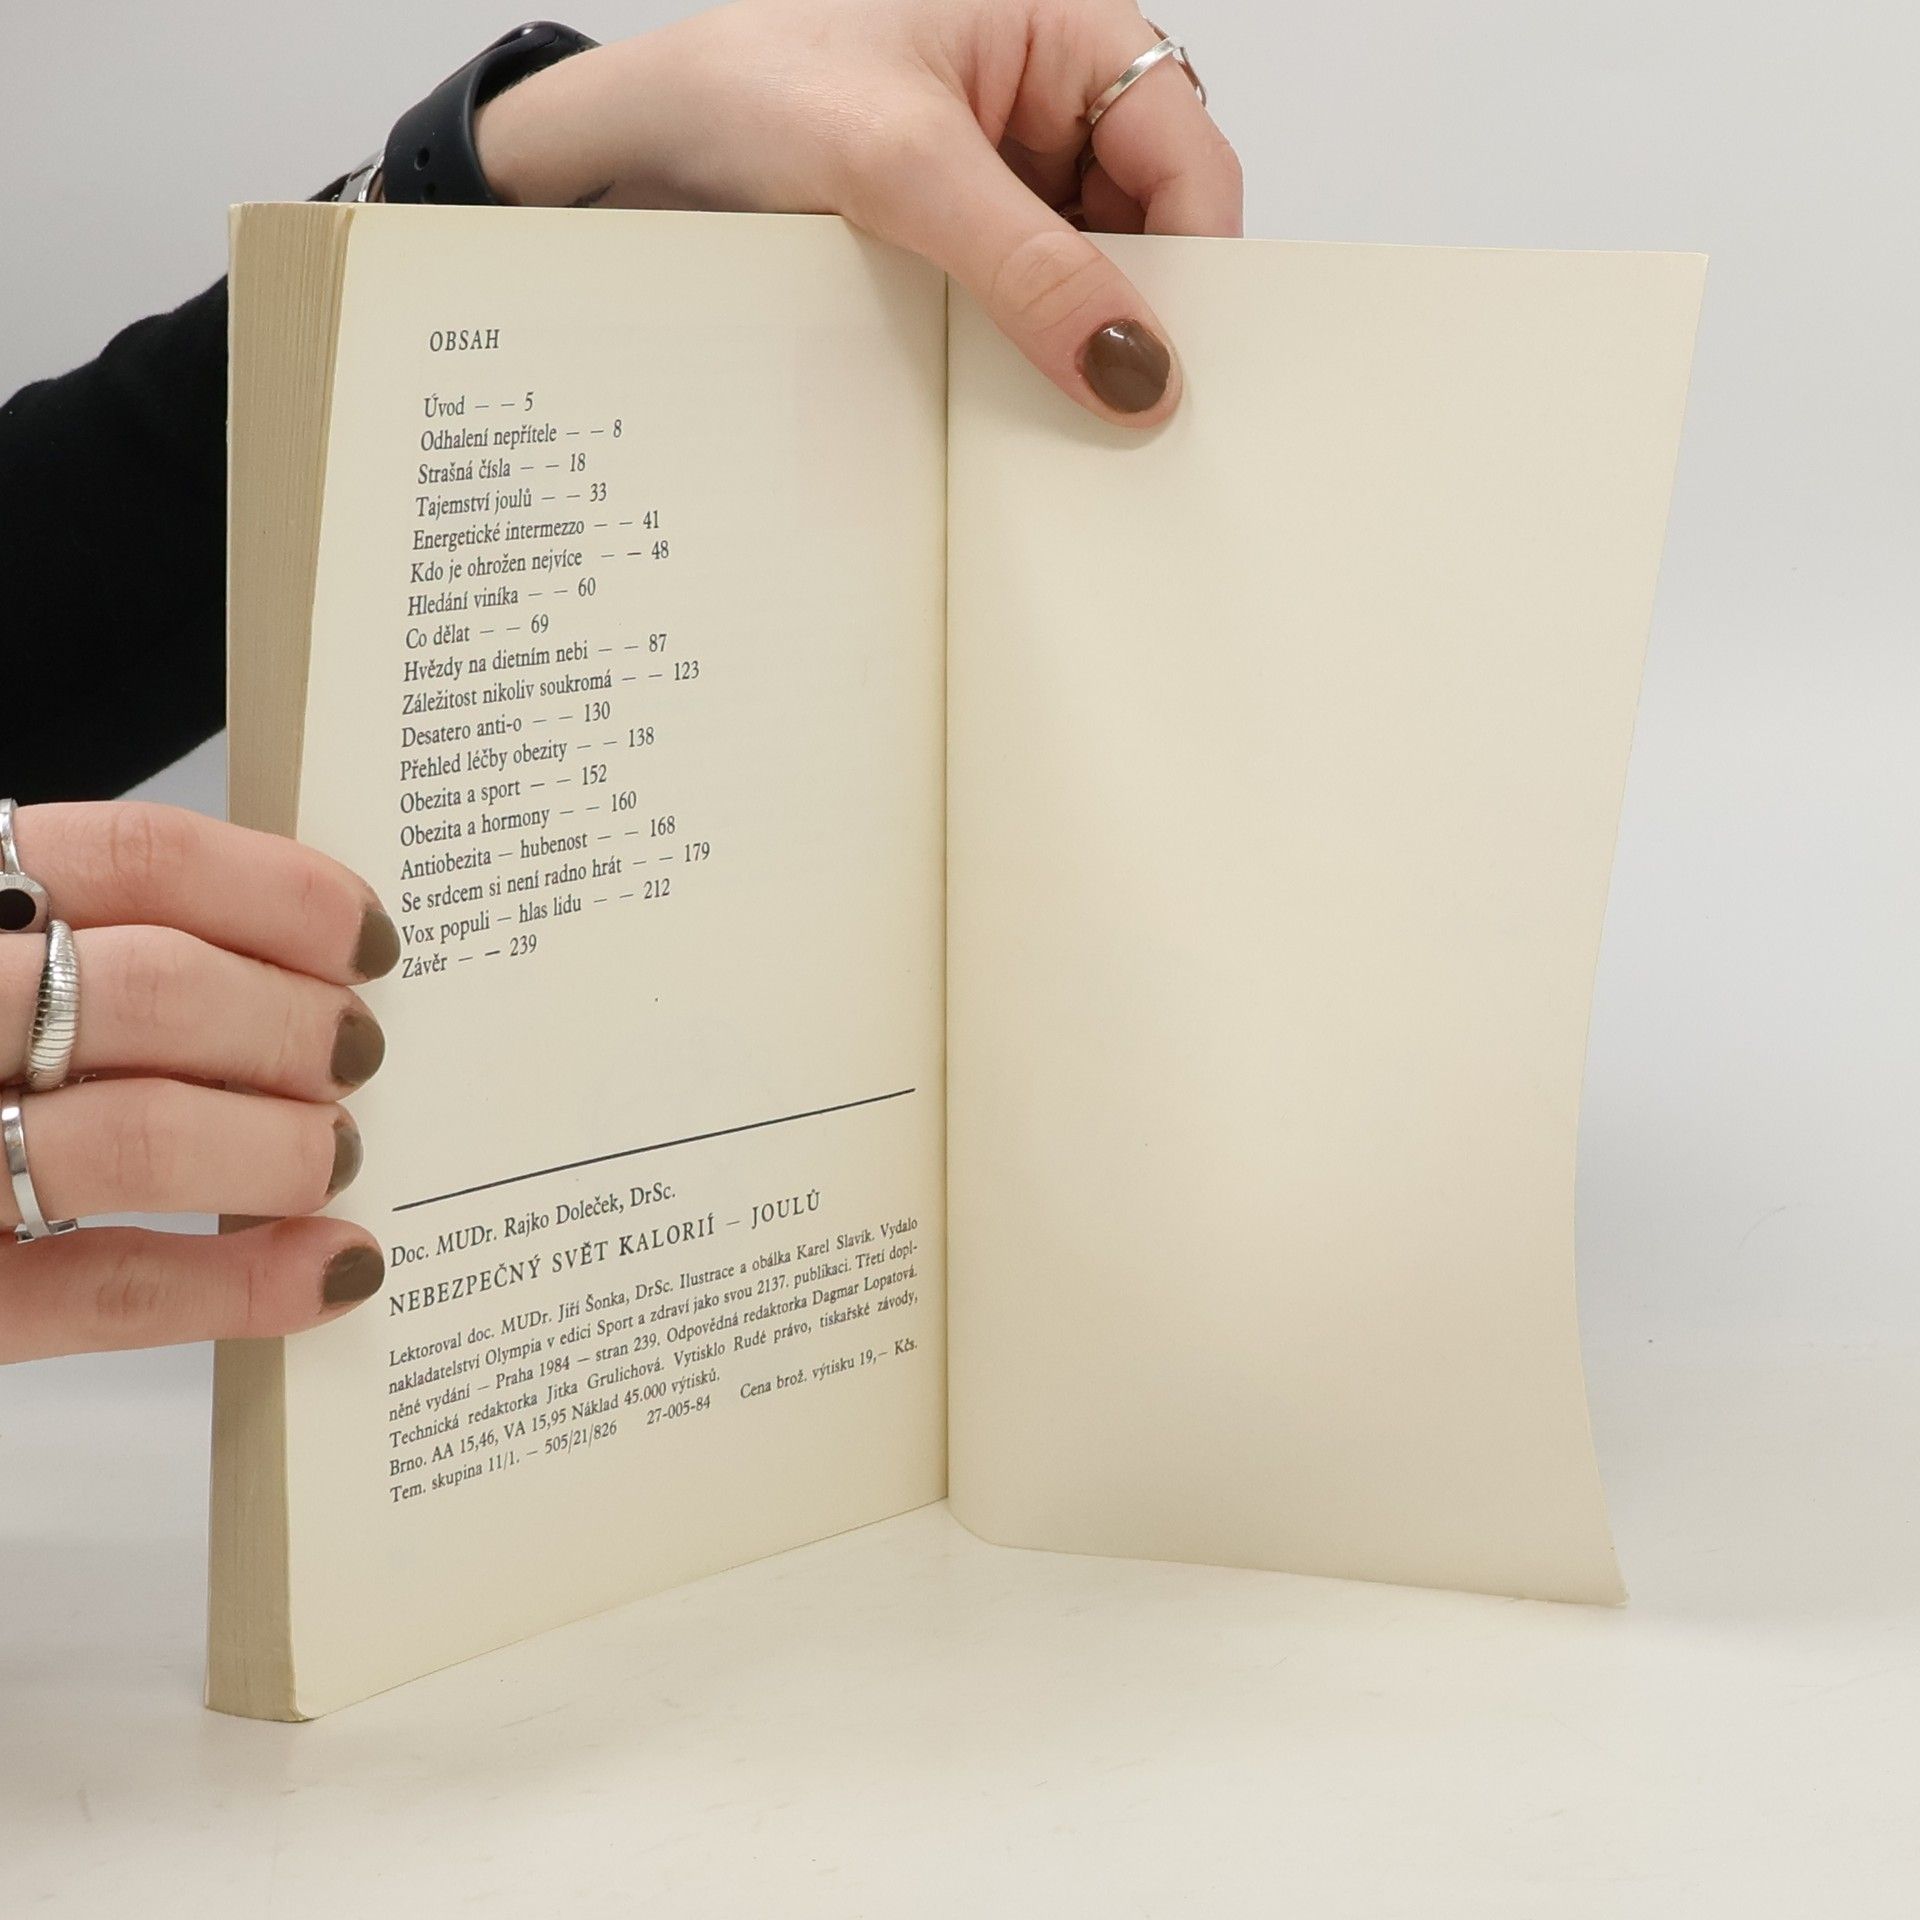 OBSAH
Úvod — — 5
Odhalení nepřítele — — 8
Strašná čísla — — 18
Tajemství joulů — — 33
Energetické intermezzo — — 41
Kdo je ohrožen nejvíce — — 48
Hledání viníka — — 60
Co dělat — — 69
Hvězdy na dietním nebi — — 87
Záležitost nikoliv soukromá — — 123
Desatero anti-o — — 130
Přehled léčby obezity — — 138
Obezita a sport — — 152
Obezita a hormony — — 160
Antiobezita — hubenost — — 168
Se srdcem si není radno hrát — — 179
Vox populi — hlas lidu — — 212
Závěr — — 239
Doc. MUDr. Rajko Doleček, DrSc.
NEBEZPEČNÝ SVĚT KALORIÍ — JOULŮ
Lektoroval doc. MUDr. Jiří Šonka, DrSc. Ilustrace a obálka Karel Slavík. Vydalo
nakladatelství Olympia v edici Sport a zdraví jako svou 2137. publikaci. Třetí dopl-
něné vydání — Praha 1984 — stran 239. Odpovědná redaktorka Dagmar Lopatová.
Technická redaktorka Jitka Grulichová. Vytisklo Rudé právo, tiskařské závody,
Brno. AA 15,46, VA 15,95 Náklad 45.000 výtisků.
Tem. skupina 11/1. — 505/21/826 27-005-84 Cena brož. výtisku 19,— Kčs.